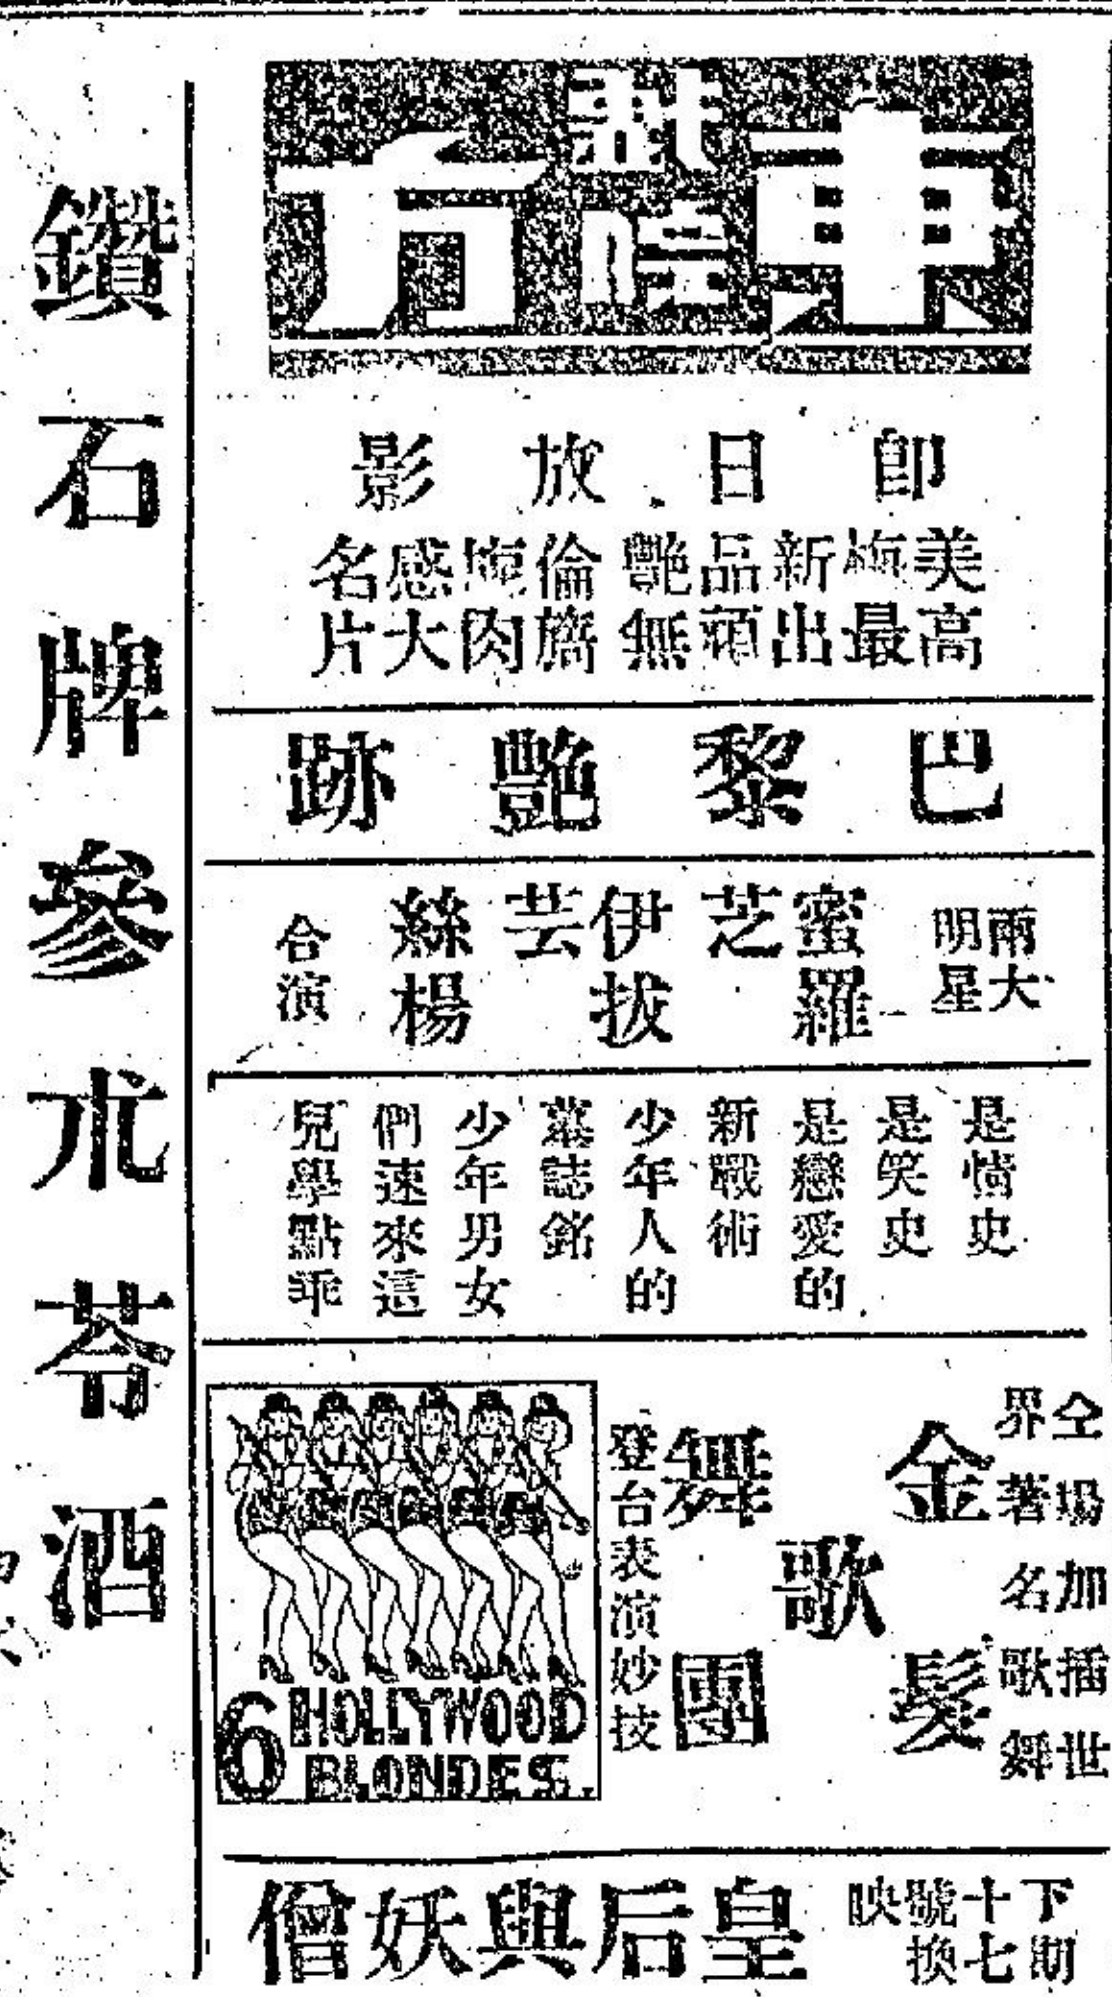 東方戲院
即日放影
美梅新品艷倫感名
高最出頭無肉大片
巴黎艷跡
兩大明星
蜜芝伊芸絲
羅拔楊
合演
是情史
是笑史
是戀愛的
新戰術
少年人的
墓誌銘
少年男女
們速來這
兒學點乖
仝場加插世
界著名歌舞
金髮歌舞團
登台表演妙技
6 HOLLYWOOD
BLONDES
下期十七號換映
皇后與妖僧
鑽石牌參朮苓酒